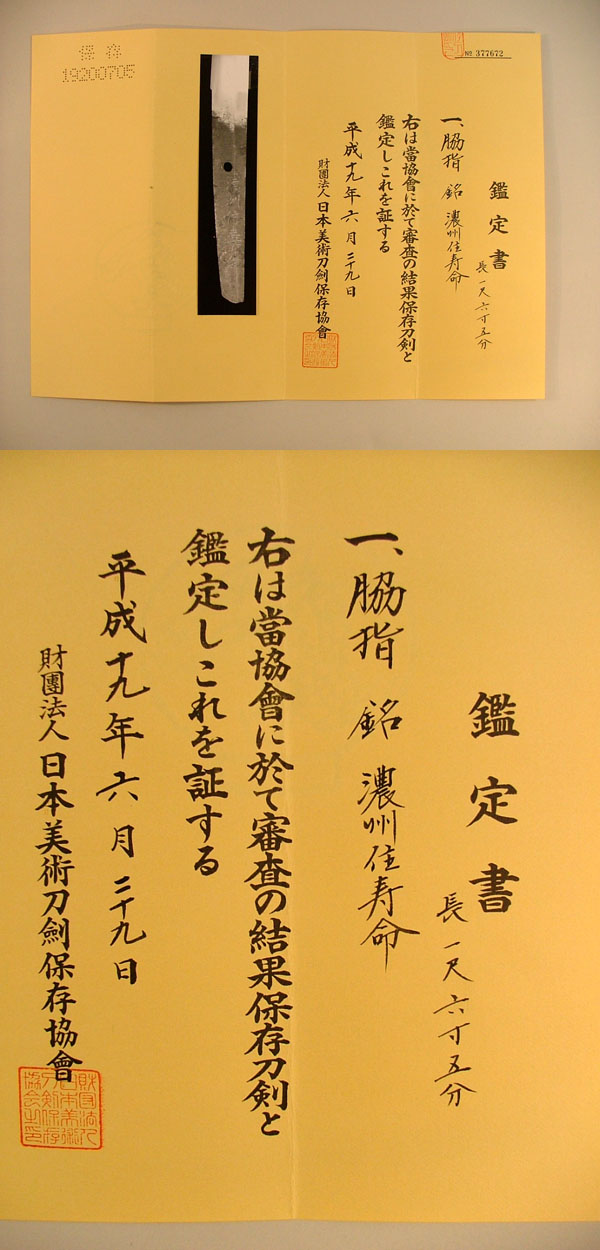 № 377672
鑑定書
長一尺六寸五分
一、脇指 銘 濃州住寿命
右は當協會に於て審査の結果保存刀剣と
鑑定しこれを証する
平成十九年六月二十九日
財團法人日本美術刀劍保存協會
保存
19200705
鑑定書
長一尺六寸五分
一、脇指 銘 濃州住寿命
右は當協會に於て審査の結果保存刀剣と
鑑定しこれを証する
平成十九年六月二十九日
財團法人日本美術刀劍保存協會